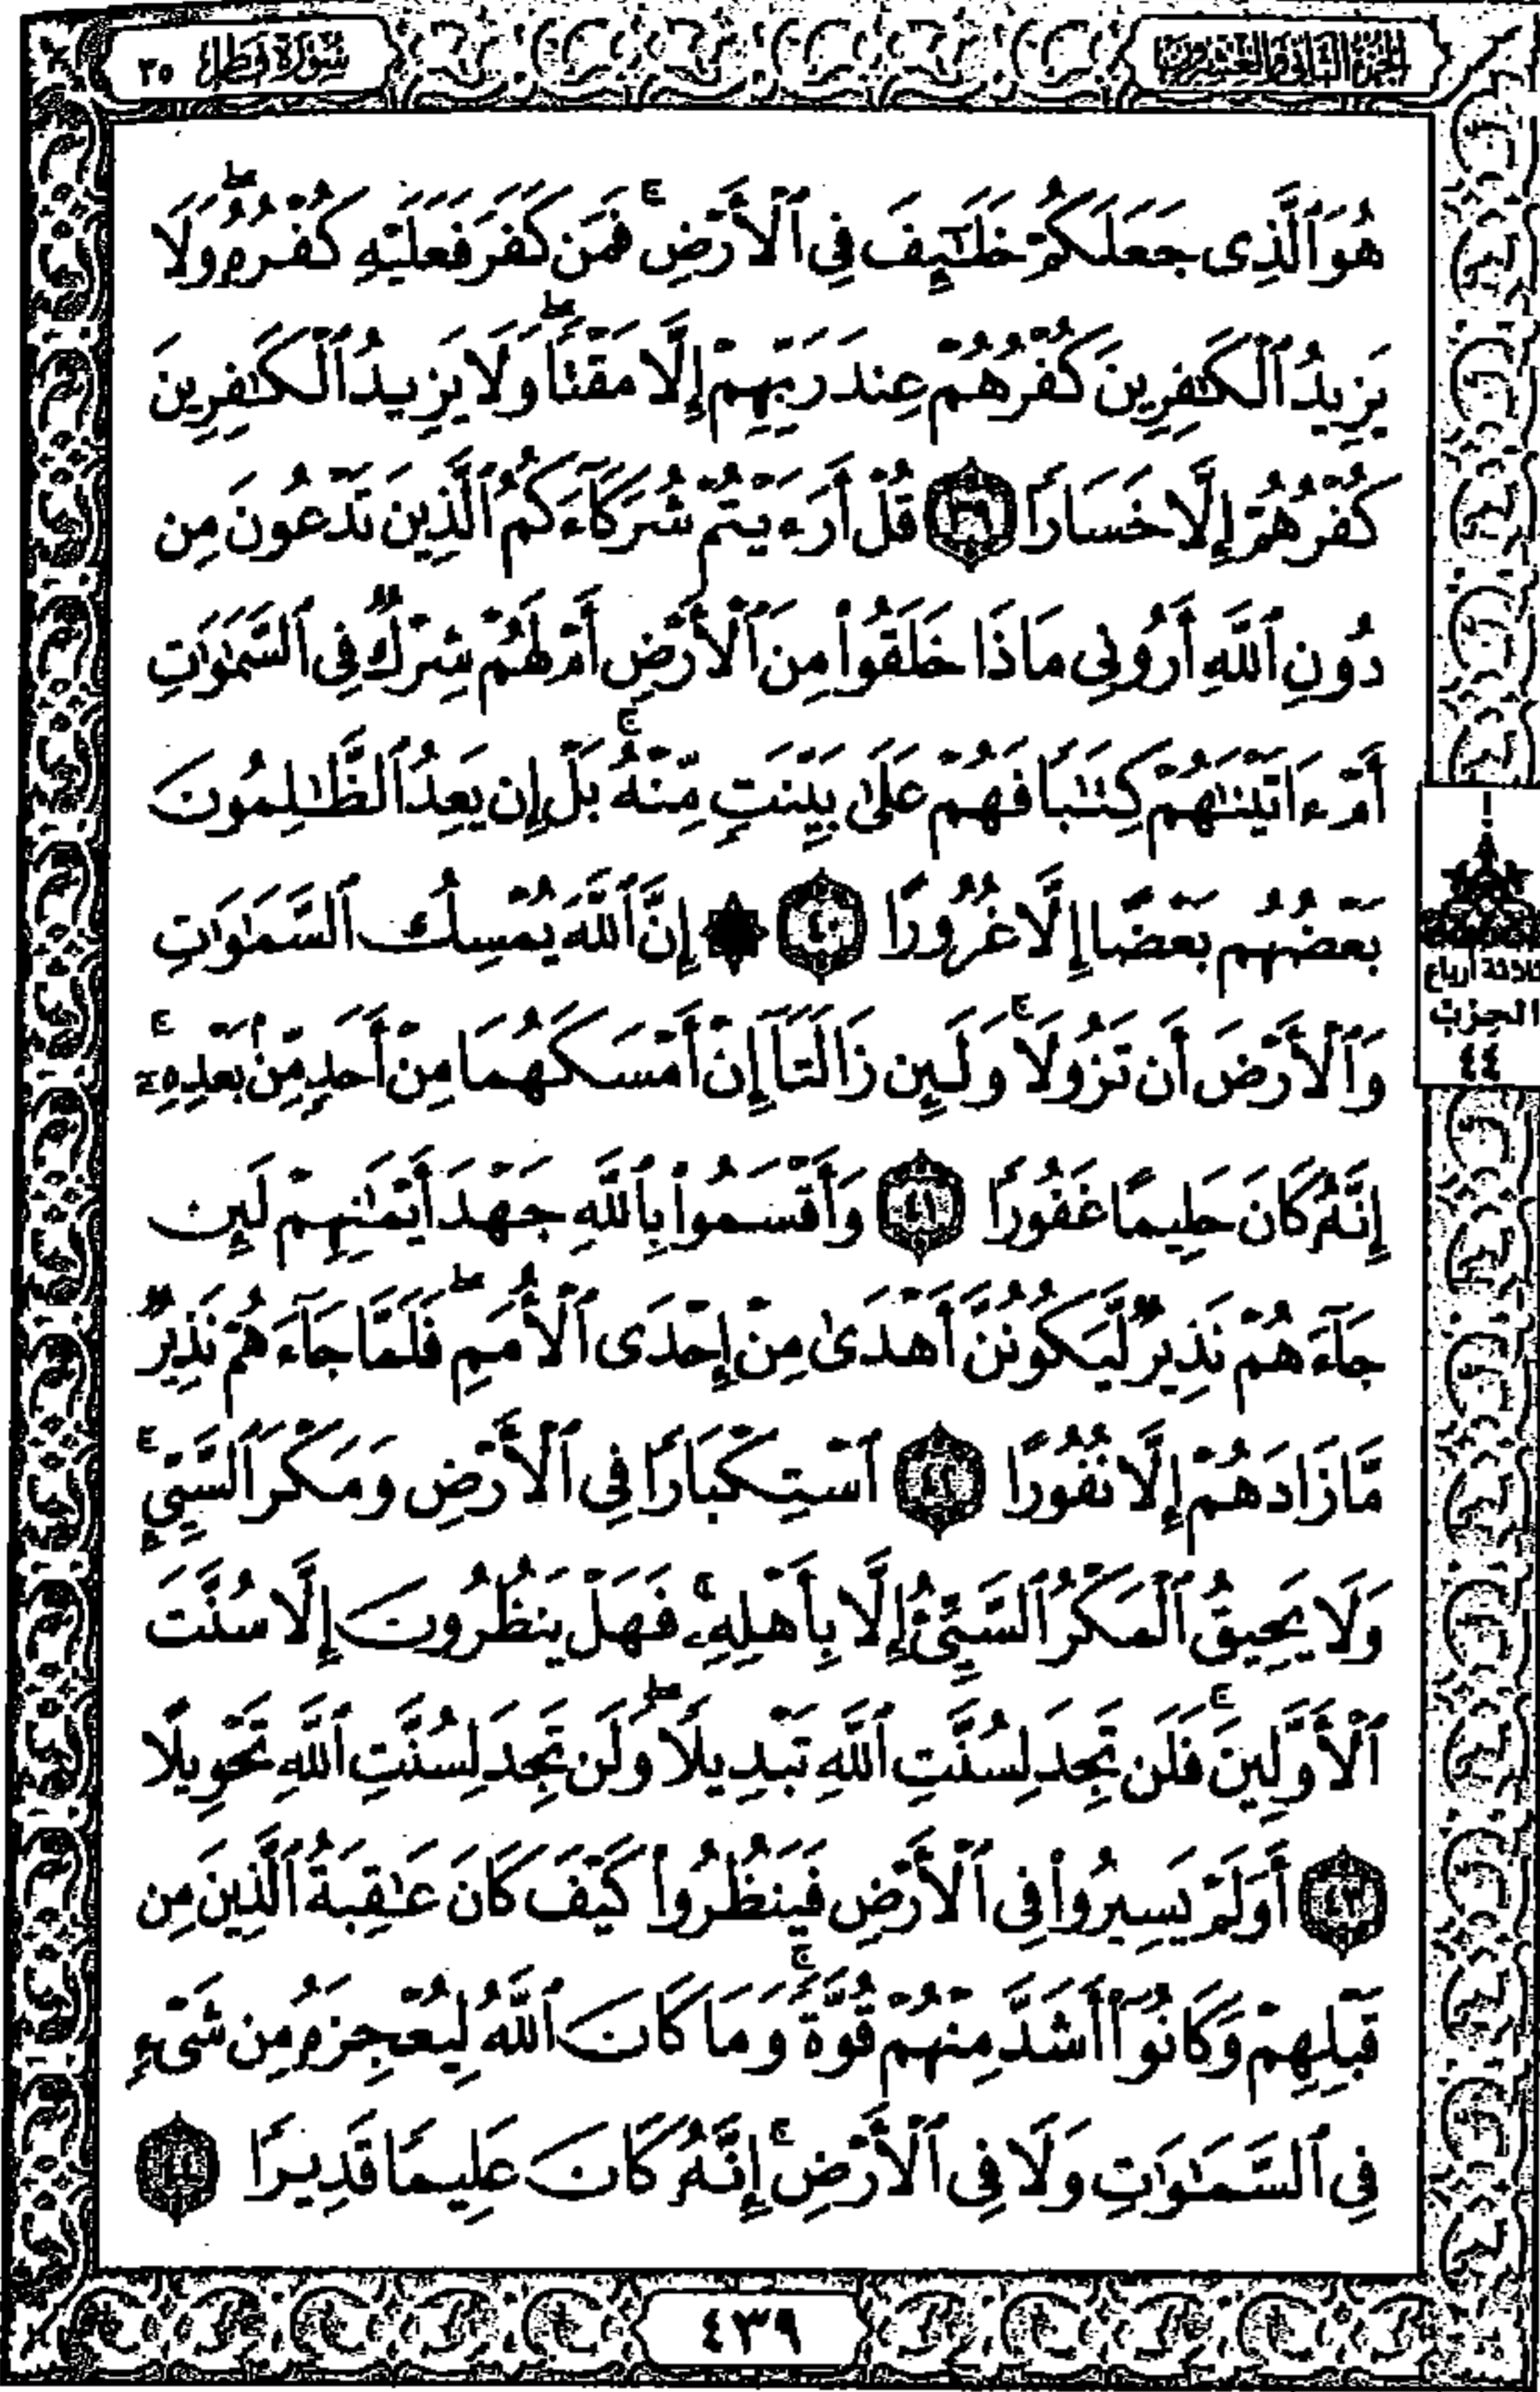 الجزء الثاني والعشرون
سورة فطر ٣٥
هُوَ ٱلَّذِى جَعَلَكُمْ خَلَٰٓئِفَ فِى ٱلْأَرْضِ ۚ فَمَن كَفَرَ فَعَلَيْهِ كُفْرُهُۥ ۖ وَلَا
يَزِيدُ ٱلْكَٰفِرِينَ كُفْرُهُمْ عِندَ رَبِّهِمْ إِلَّا مَقْتًا ۖ وَلَا يَزِيدُ ٱلْكَٰفِرِينَ
كُفْرُهُمْ إِلَّا خَسَارًا ٣٩ قُلْ أَرَءَيْتُمْ شُرَكَآءَكُمُ ٱلَّذِينَ تَدْعُونَ مِن
دُونِ ٱللَّهِ أَرُونِى مَاذَا خَلَقُوا۟ مِنَ ٱلْأَرْضِ أَمْ لَهُمْ شِرْكٌ فِى ٱلسَّمَٰوَٰتِ
أَمْ ءَاتَيْنَٰهُمْ كِتَٰبًا فَهُمْ عَلَىٰ بَيِّنَتٍ مِّنْهُ ۚ بَلْ إِن يَعِدُ ٱلظَّٰلِمُونَ
بَعْضُهُم بَعْضًا إِلَّا غُرُورًا ٤٠ ۞ إِنَّ ٱللَّهَ يُمْسِكُ ٱلسَّمَٰوَٰتِ
وَٱلْأَرْضَ أَن تَزُولَا ۚ وَلَئِن زَالَتَآ إِنْ أَمْسَكَهُمَا مِنْ أَحَدٍ مِّنۢ بَعْدِهِۦٓ ۚ
إِنَّهُۥ كَانَ حَلِيمًا غَفُورًا ٤١ وَأَقْسَمُوا۟ بِٱللَّهِ جَهْدَ أَيْمَٰنِهِمْ لَئِن
جَآءَهُمْ نَذِيرٌ لَّيَكُونُنَّ أَهْدَىٰ مِنْ إِحْدَى ٱلْأُمَمِ ۖ فَلَمَّا جَآءَهُمْ نَذِيرٌ
مَّا زَادَهُمْ إِلَّا نُفُورًا ٤٢ ٱسْتِكْبَارًا فِى ٱلْأَرْضِ وَمَكْرَ ٱلسَّيِّئِ ۚ
وَلَا يَحِيقُ ٱلْمَكْرُ ٱلسَّيِّئُ إِلَّا بِأَهْلِهِۦ ۚ فَهَلْ يَنظُرُونَ إِلَّا سُنَّتَ
ٱلْأَوَّلِينَ ۚ فَلَن تَجِدَ لِسُنَّتِ ٱللَّهِ تَبْدِيلًا ۖ وَلَن تَجِدَ لِسُنَّتِ ٱللَّهِ تَحْوِيلًا
٤٣ أَوَلَمْ يَسِيرُوا۟ فِى ٱلْأَرْضِ فَيَنظُرُوا۟ كَيْفَ كَانَ عَٰقِبَةُ ٱلَّذِينَ مِن
قَبْلِهِمْ وَكَانُوٓا۟ أَشَدَّ مِنْهُمْ قُوَّةً ۚ وَمَا كَانَ ٱللَّهُ لِيُعْجِزَهُۥ مِن شَىْءٍ
فِى ٱلسَّمَٰوَٰتِ وَلَا فِى ٱلْأَرْضِ ۚ إِنَّهُۥ كَانَ عَلِيمًا قَدِيرًا ٤٤
أرباع
الحزب
٤٤
٤٣٩